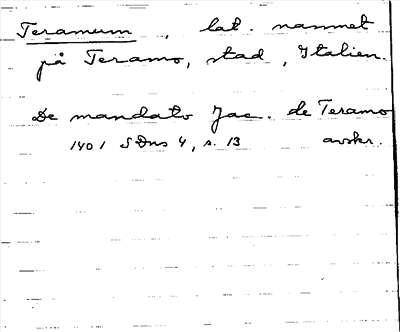 Teramum, lat. namnet
på Teramo, stad, Italien.
De mandato Jac. de Teramo
1401 SDns 4, s. 13 avskr.